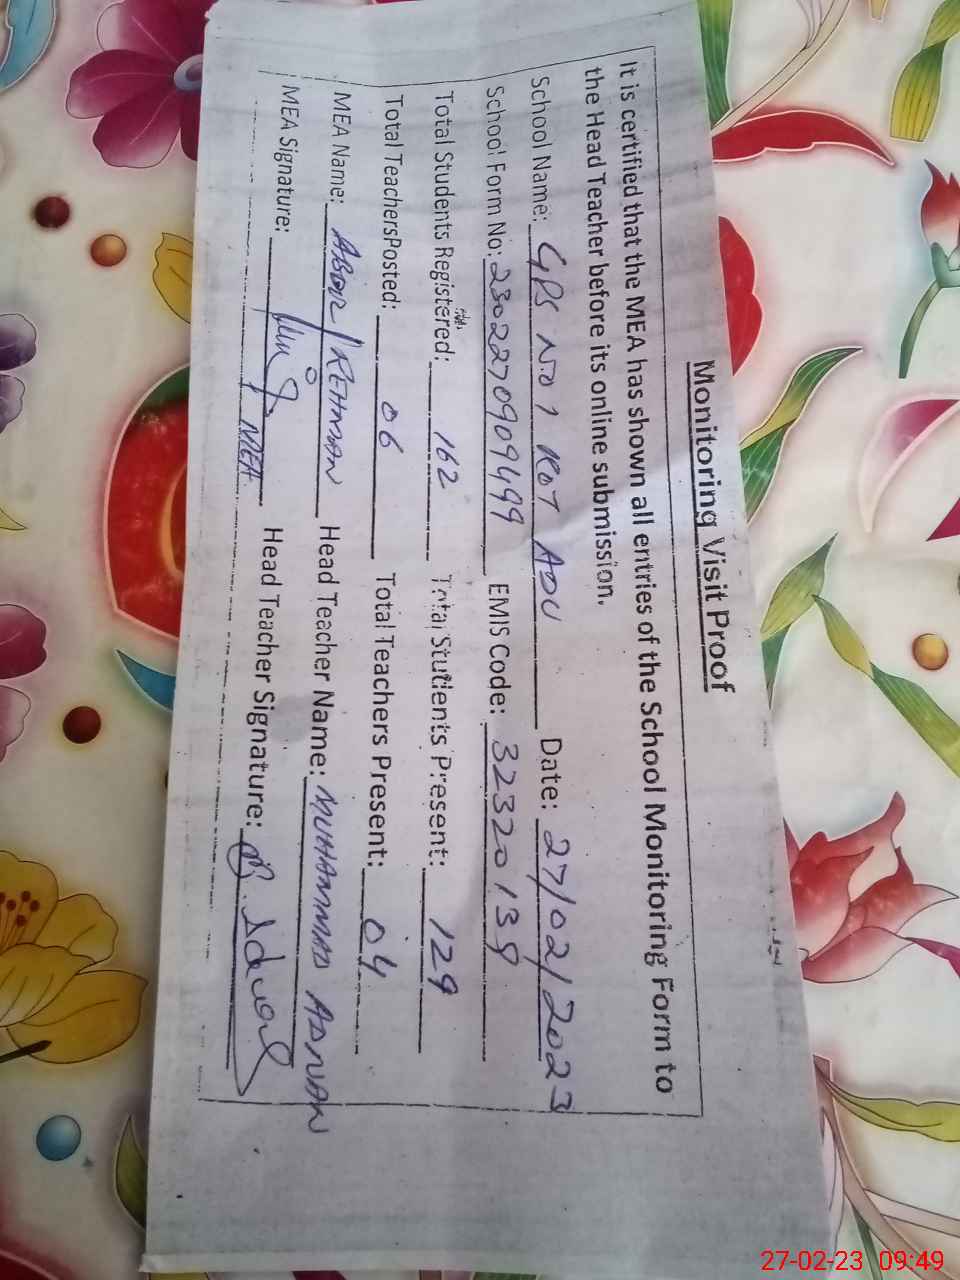 Monitoring Visit Proof
It is certified that the MEA has shown all entries of the School Monitoring Form to
the Head Teacher before its online submission.
School Name: GPS No 1 KOT ADU Date: 27/02/2023
School Form No: 2302270909499 EMIS Code: 32320139
Total Students Registered: 162 Total Students Present: 129
Total TeachersPosted: 06 Total Teachers Present: 04
MEA Name: ABDUR REHMAN Head Teacher Name: MUHAMMAD ADNAN
MEA Signature: MEA Head Teacher Signature:
27-02-23 09:49